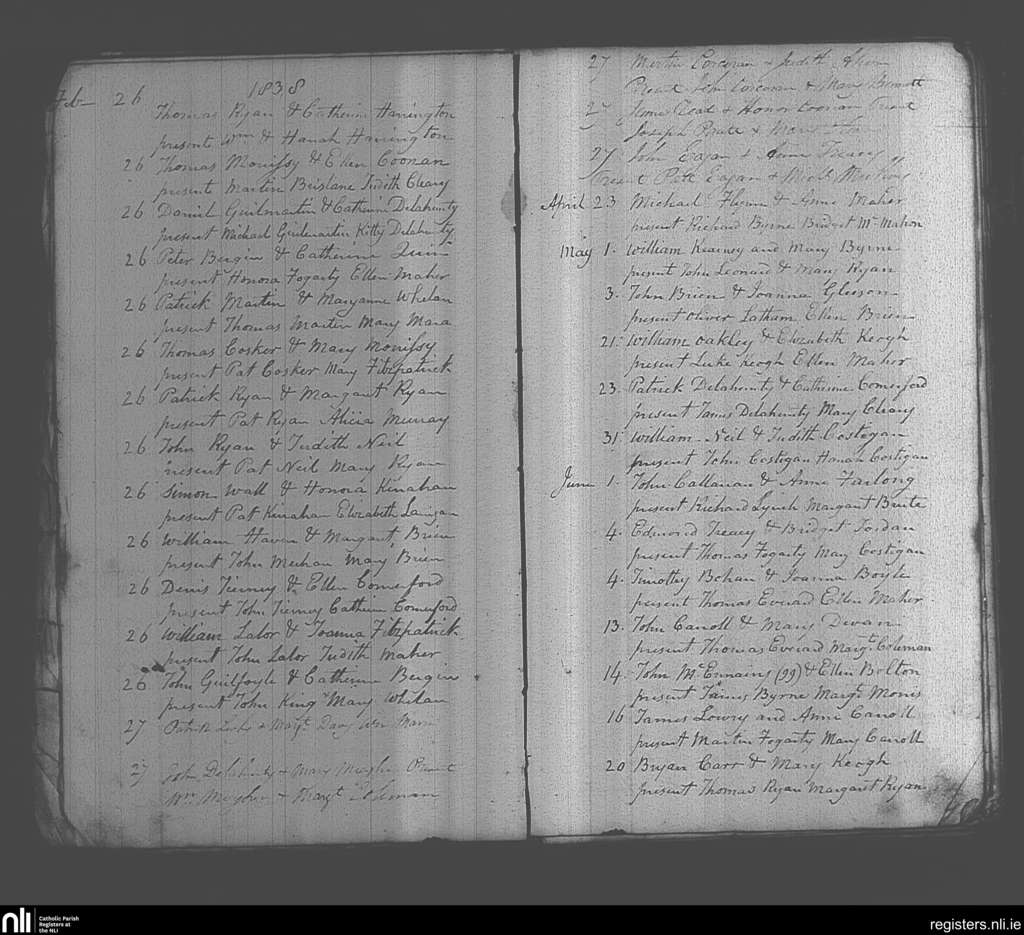 1838
Feb 26
Thomas Ryan & Catherine Harrington
present Wm & Hanah Harrington
26 Thomas Morrissy & Ellen Coonan
present Martin Brislane Judith Cleary
26 Daniel Guilmartin & Catherine Delahunty
present Michael Guilmartin Kitty Delahunty
26 Peter Bergin & Catherine Quin
present Honora Fogarty Ellen Maher
26 Patrick Martin & Maryanne Whelan
present Thomas Martin Mary Mara
26 Thomas Cosker & Mary Morrissy
present Pat Cosker Mary Fitzpatrick
26 Patrick Ryan & Margaret Ryan
present Pat Ryan Alicia Murray
26 John Ryan & Judith Neil
present Pat Neil Mary Ryan
26 Simon Wall & Honora Kinahan
present Pat Kinahan Elizabeth Lanigan
26 William Haven & Margaret Brien
present John Meehan Mary Brien
26 Denis Tierney & Ellen Comerford
present John Tierney Catherine Comerford
26 William Lalor & Joanna Fitzpatrick
present John Lalor Judith Maher
26 John Guilfoyle & Catherine Bergin
present John King Mary Whelan
27 Patrick & Margt
27 John Delahunty & Mary Meagher Present
Wm Meagher & Margt Coleman
27 Martin Corcoran & Judith
Present John Corcoran & Mary Bennett
27 & Honor Coonan Present
Joseph & Mary
27 John Eagan & Anne Treacy
Present Patt Eagan &
April 23 Michael Flynn & Anne Maher
present Richard Byrne Bridget McMahon
May 1. William Kearney and Mary Byrne
present John Leonard & Mary Ryan
3. John Brien & Joanna Gleeson
present Oliver Latham Ellen Brien
21. William Oakley & Elizabeth Keogh
present Luke Keogh Ellen Maher
23. Patrick Delahunty & Catherine Comerford
present James Delahunty Mary Cleary
31 William Neil & Judith Costigan
present John Costigan Hanah Costigan
June 1. John Callanan & Anne Farlong
present Richard Lynch Margaret Burke
4. Edmond Treacy & Bridget Jordan
present Thomas Fogarty Mary Costigan
4. Timothy Behan & Joanna Boyle
present Thomas Everard Ellen Maher
13. John Carroll & Mary Dwan
present Thomas Everard Margt Coleman
14. John McEnnains (99) & Ellen Bolton
present James Byrne Margt Morris
16 James Lowry and Anne Carroll
present Martin Fogarty Mary Carroll
20 Bryan Carr & Mary Keogh
present Thomas Ryan Margaret Ryan
nli
Catholic Parish
Registers at
the NLI
registers.nli.ie